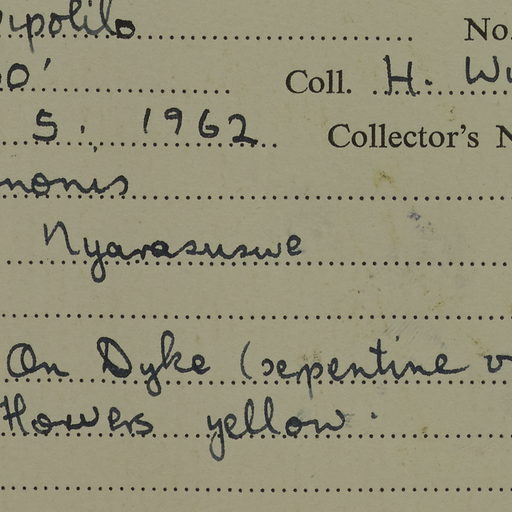 Dipolilo No.
00' Coll. H. W
5. 1962 Collector's N
Nyarasuswe
On Dyke (serpentine v
Flowers yellow.